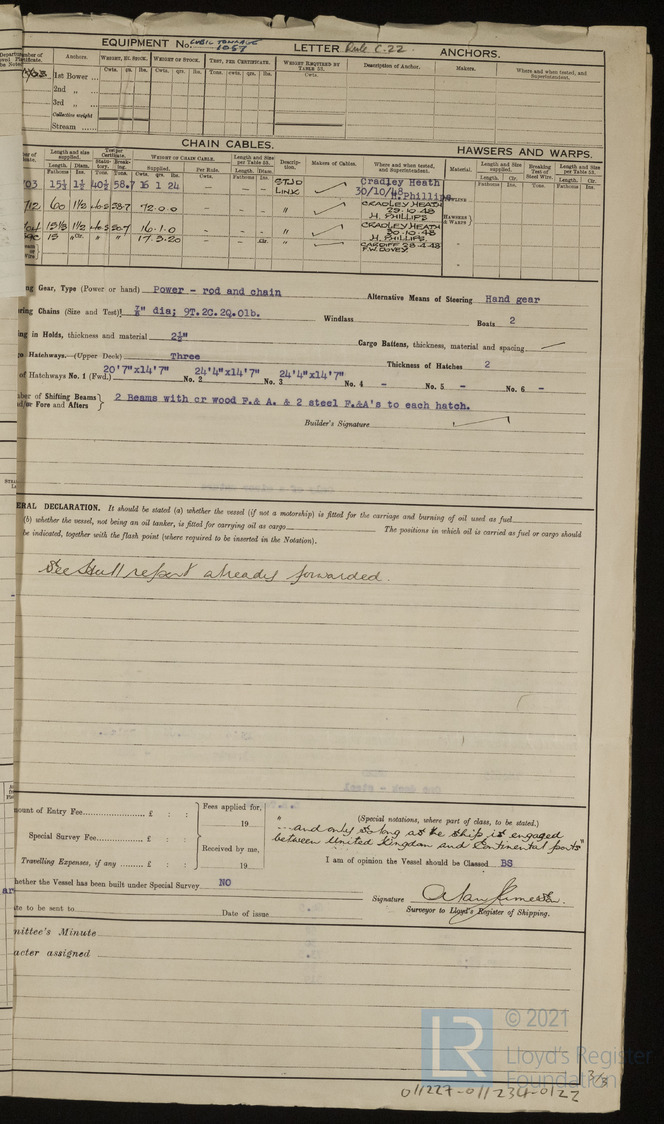 EQUIPMENT No. CUBIC TONNAGE 1057 LETTER Rule C.22. ANCHORS.
Anchors. WEIGHT, EX. STOCK. WEIGHT OF STOCK. TEST, PER CERTIFICATE. WEIGHT REQUIRED BY TABLE 53. Description of Anchor. Makers. Where and when tested, and Superintendent.
Cwts. qrs. lbs. Cwts. qrs. lbs. Tons. cwts. qrs. lbs. Cwts.
1st Bower ...
2nd „ ...
3rd „ ...
Collective weight
Stream ......
CHAIN CABLES. HAWSERS AND WARPS.
Length and size supplied. Test per Certificate. WEIGHT OF CHAIN CABLE. Length and Size per Table 53. Description. Makers of Cables. Where and when tested, and Superintendent. Material. Length and Size supplied. Breaking Test of Steel Wire. Length and Size per Table 53.
Length. Diam. Statutory. Breaking. Supplied. Per Rule. Length. Diam. Length. Cir. Length. Cir.
Fathoms Ins. Tons. Tons. Cwts. qrs. lbs. Cwts. Fathoms Ins. Fathoms Ins. Tons. Fathoms Ins.
15½ 1½ 40½ 58.7 16 1 24 – – – STUD LINK Cradley Heath
30/10/48 H.Phillips
60 1½ 58.7 72.0.0 – – – " CRADLEY HEATH
29.10.48
H. PHILLIPS
HAWSERS & WARPS
1½ 16.1.0 – – – " CRADLEY HEATH
30.10.48
H. PHILLIPS
15 " " " 17.3.20 – – Cir. " CARDIFF 28.4.48
F.W. DOVEY
Gear, Type (Power or hand) Power - rod and chain Alternative Means of Steering Hand gear
Chains (Size and Test) ⅞" dia; 9T.2C.2Q.0lb. Windlass Boats 2
in Holds, thickness and material 2½" Cargo Battens, thickness, material and spacing
Hatchways.—(Upper Deck) Three Thickness of Hatches 2
of Hatchways No. 1 (Fwd.) 20'7"x14'7" No. 2 24'4"x14'7" No. 3 24'4"x14'7" No. 4 - No. 5 - No. 6 -
of Shifting Beams
Fore and Afters } 2 Beams with cr wood F.& A. & 2 steel F.&A's to each hatch.
Builder's Signature
ERAL DECLARATION. It should be stated (a) whether the vessel (if not a motorship) is fitted for the carriage and burning of oil used as fuel
(b) whether the vessel, not being an oil tanker, is fitted for carrying oil as cargo The positions in which oil is carried as fuel or cargo should
be indicated, together with the flash point (where required to be inserted in the Notation).
See Hull report already forwarded.
mount of Entry Fee £ : : Fees applied for,
19
Special Survey Fee £ : : Received by me,
Travelling Expenses, if any £ : : 19
(Special notations, where part of class, to be stated.)
" ...and only so long as the ship is engaged
between United Kingdom and Continental ports"
I am of opinion the Vessel should be Classed BS
hether the Vessel has been built under Special Survey NO
Signature
te to be sent to Date of issue Surveyor to Lloyd's Register of Shipping.
mittee's Minute
acter assigned
© 2021
LR Lloyd's Register
Foundation
3/3
011227-011234-0122